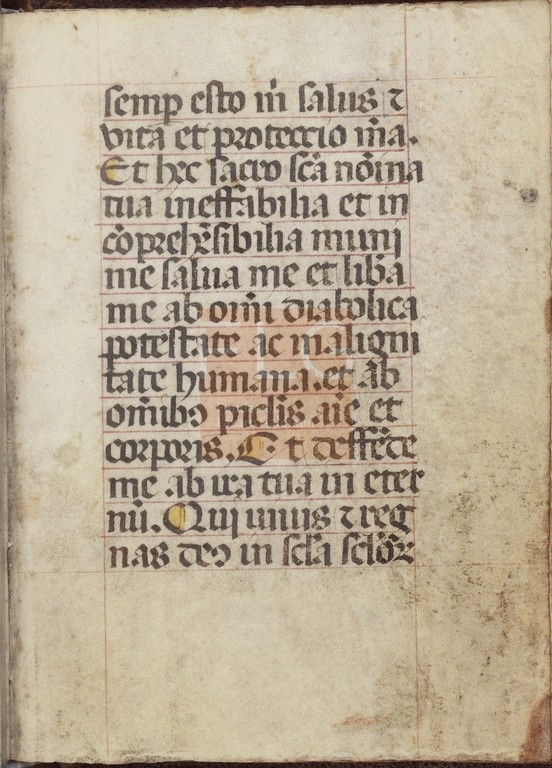 semp esto m̄ salus ⁊
vita et protectio m̄a.
Et hec sacro sc̄a nōīna
tua ineffabilia et in
cōprehēsibilia muni
me salua me et lib̄a
me ab om̄i diabolica
potestate ac maligni
tate humana. et ab
om̄ibꝰ piclīs aīe et
corporis. Et deffēde
me ab ira tua in eter
nū. Qui uiuis ⁊ reg
nas deꝰ in sc̄la sc̄loꝝ